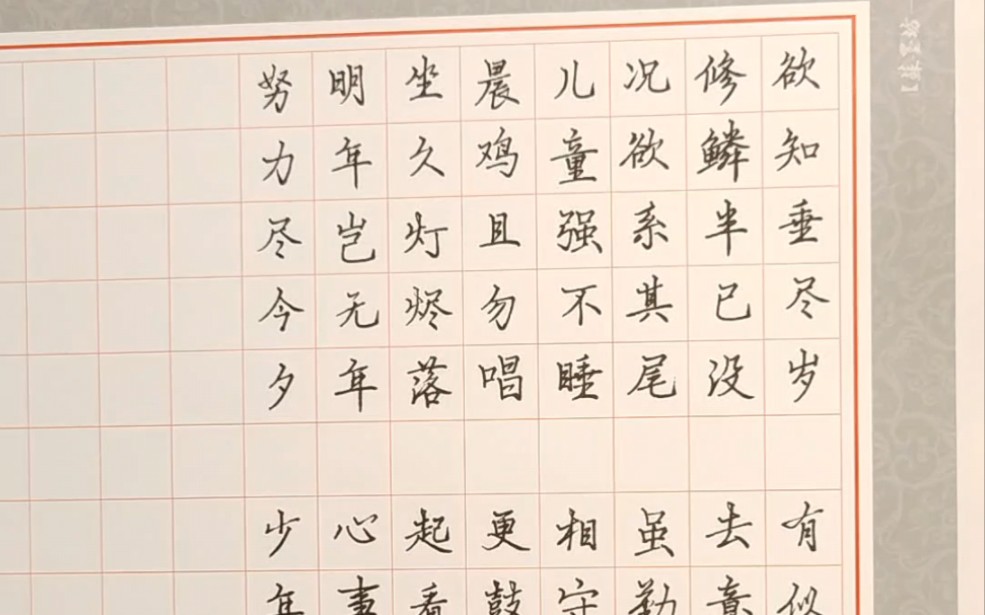 欲知垂尽岁 有似
修鳞半已没 去意
况欲系其尾 虽勤
儿童强不睡 相守
晨鸡且勿唱 更鼓
坐久灯烬落 起看
明年岂无年 心事
努力尽今夕 少年